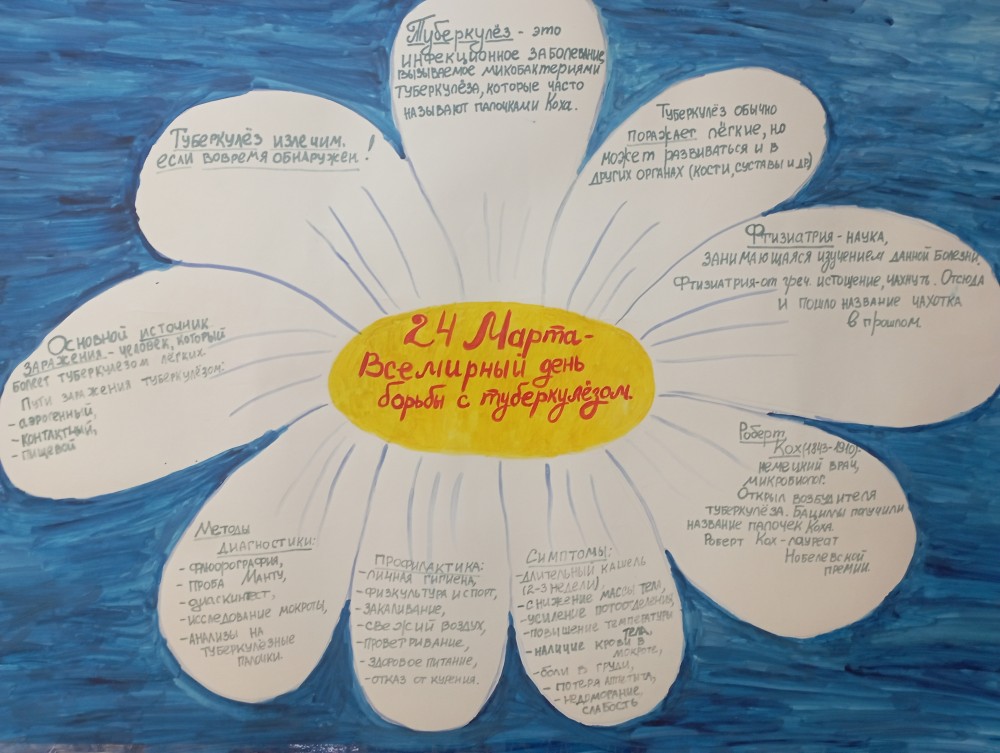 Туберкулёз - это
инфекционное заболевание
вызываемое микобактериями
туберкулёза, которые часто
называют палочками Коха.
Туберкулёз обычно
поражает лёгкие, но
может развиваться и в
других органах (кости, суставы и др)
Фтизиатрия - наука,
занимающаяся изучением данной болезни.
Фтизиатрия - от греч. истощение, чахнуть. Отсюда
и пошло название чахотка
в прошлом.
Роберт
Кох (1843-1910)-
немецкий врач,
микробиолог.
Открыл возбудителя
туберкулёза. Бациллы получили
название палочек Коха.
Роберт Кох - лауреат
Нобелевской
премии.
Симптомы:
- длительный кашель
(2-3 недели),
- снижение массы тела,
- усиление потоотделения,
- повышение температуры
тела,
- наличие крови в
мокроте,
- боли в груди,
- потеря аппетита,
- недомогание,
слабость
Профилактика:
- личная гигиена,
- физкультура и спорт,
- закаливание,
- свежий воздух,
- проветривание,
- здоровое питание,
- отказ от курения.
Методы
диагностики:
- флюорография,
- проба Манту,
- диаскинтест,
- исследование мокроты,
- анализы на
туберкулёзные
палочки.
Основной источник
заражения - человек, который
болеет туберкулёзом лёгких.
Пути заражения туберкулёзом:
- аэрогенный,
- контактный,
- пищевой
Туберкулёз излечим,
если вовремя обнаружен!
24 Марта-
Всемирный день
борьбы с туберкулёзом.